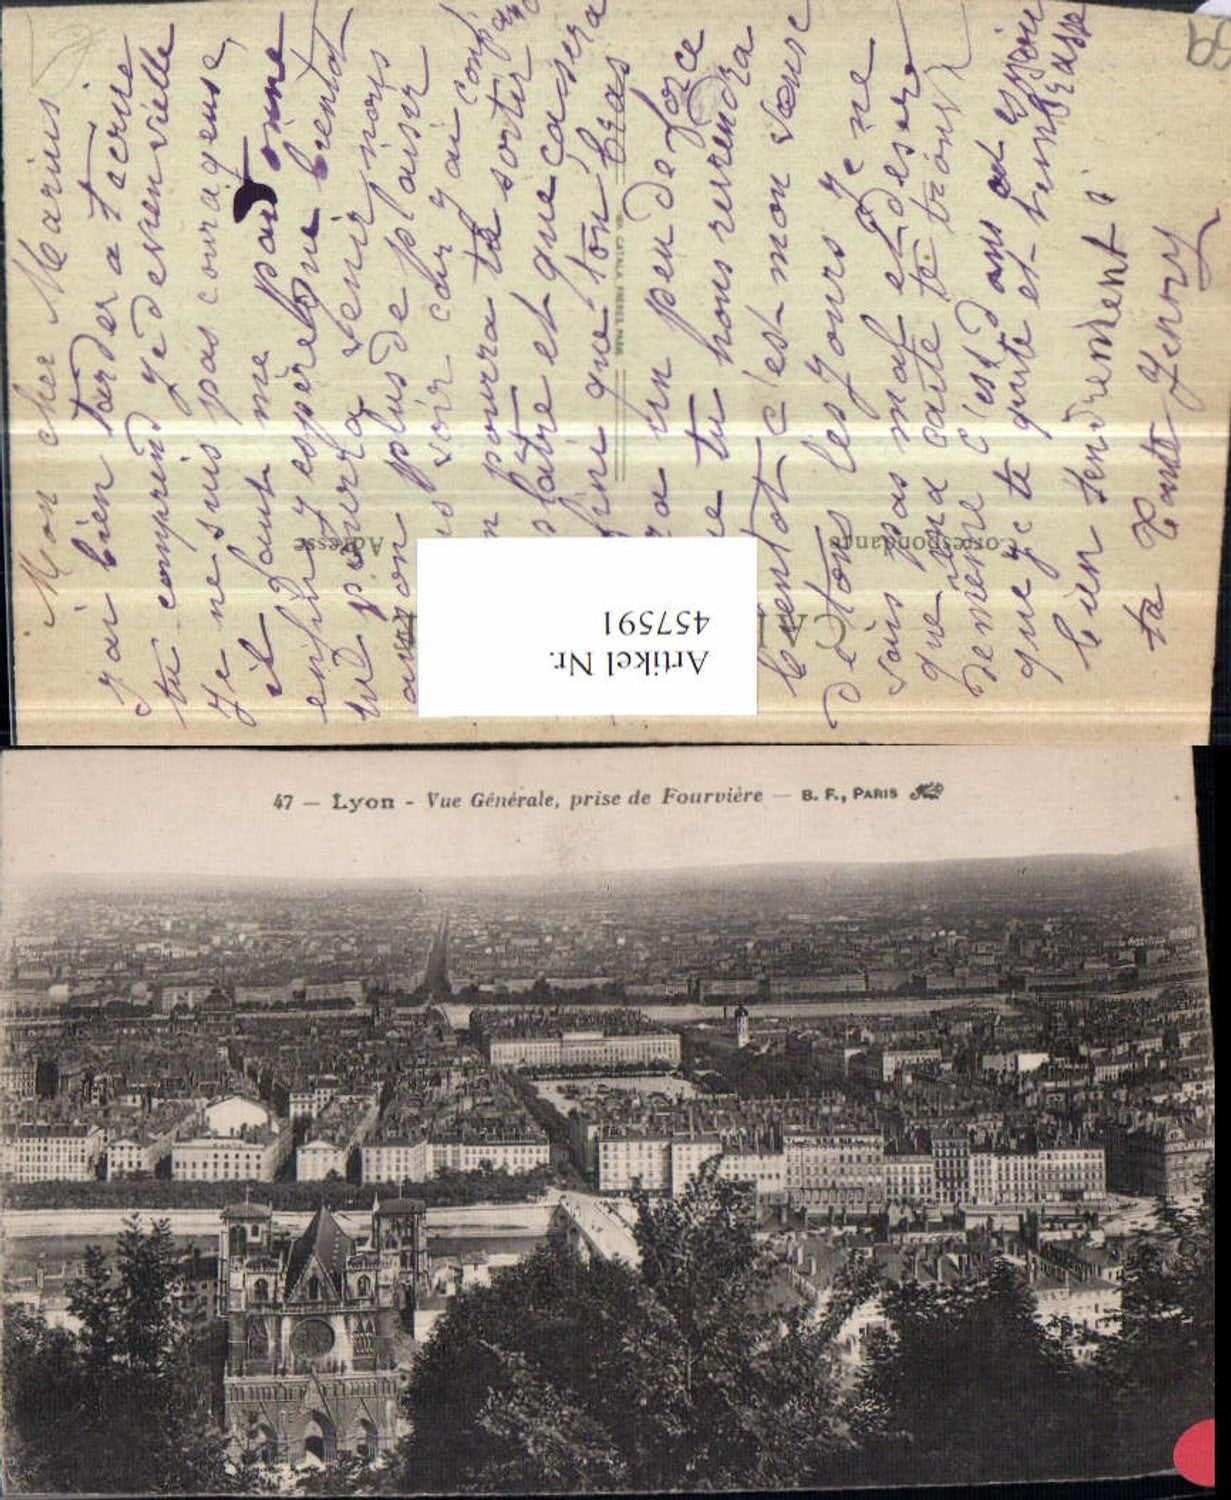 Mon cher Marius
j'ai bien tarder a t'ecrire
tu comprend je devien vieille
je ne suis pas courageuse,
il faut me pardonne
enfin j'espère que bientot
tu pourra venir nous
auron plus de plaisir
voir car j'ai
pourra te sortir
platre et que ça sera
fini que ton bras
ra un peu de force
e tu nous reviendra
bientot c'est mon vœux
de tous les jours je ne
suis pas mal et desire
que ma carte te trouve
de meme c'est dans cet espoir
que je te quite et t'embrasse
bien tendrement
ta Tante Jenny
Correspondance
Adresse
CATALA FRERES, PARIS
CA
Artikel Nr.
457591
47 — Lyon - Vue Générale, prise de Fourvière — B. F., PARIS